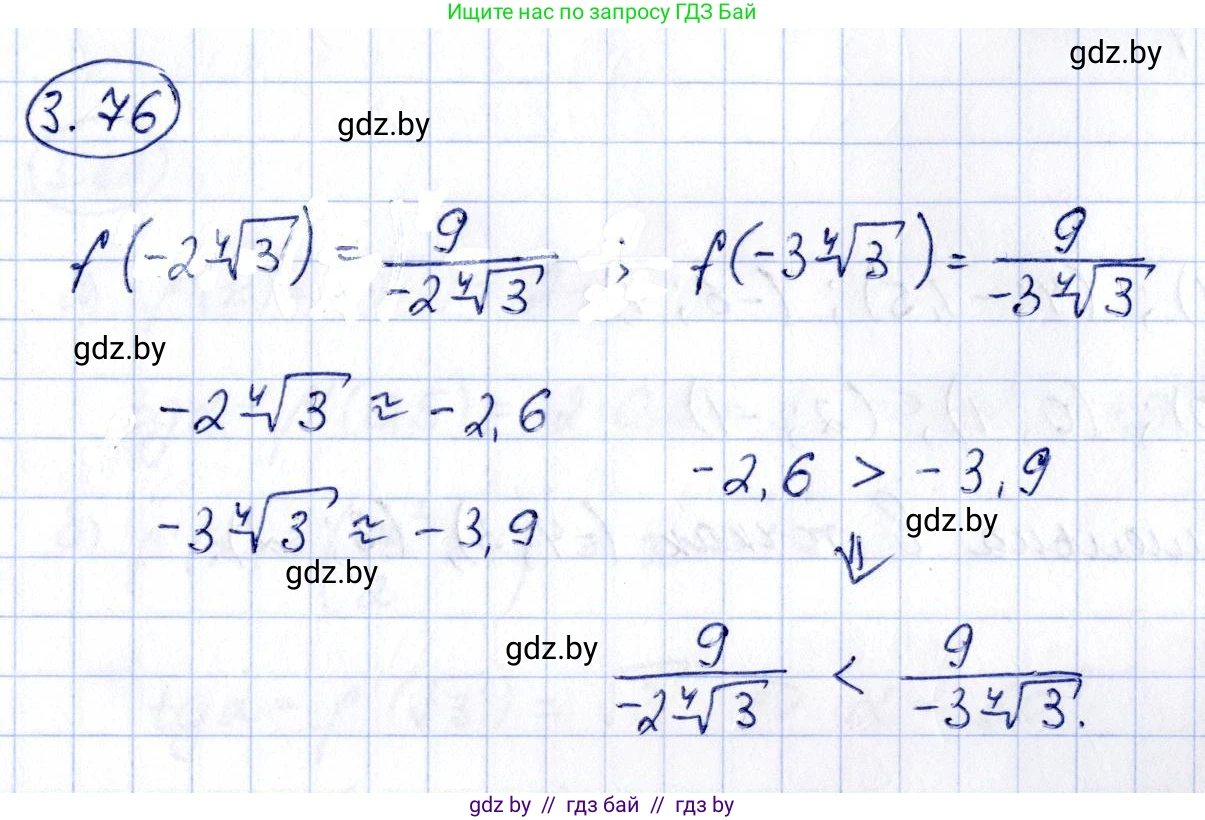 Ищите нас по запросу ГДЗ Бай
gdz.by
3.76
gdz.by
f(-2∜3) = 9/(-2∜3) ; f(-3∜3) = 9/(-3∜3)
gdz.by
-2∜3 ≈ -2,6
-2,6 > -3,9
gdz.by
-3∜3 ≈ -3,9
gdz.by
⇓
gdz.by
9/(-2∜3) < 9/(-3∜3).
gdz by // гдз бай // гдз by